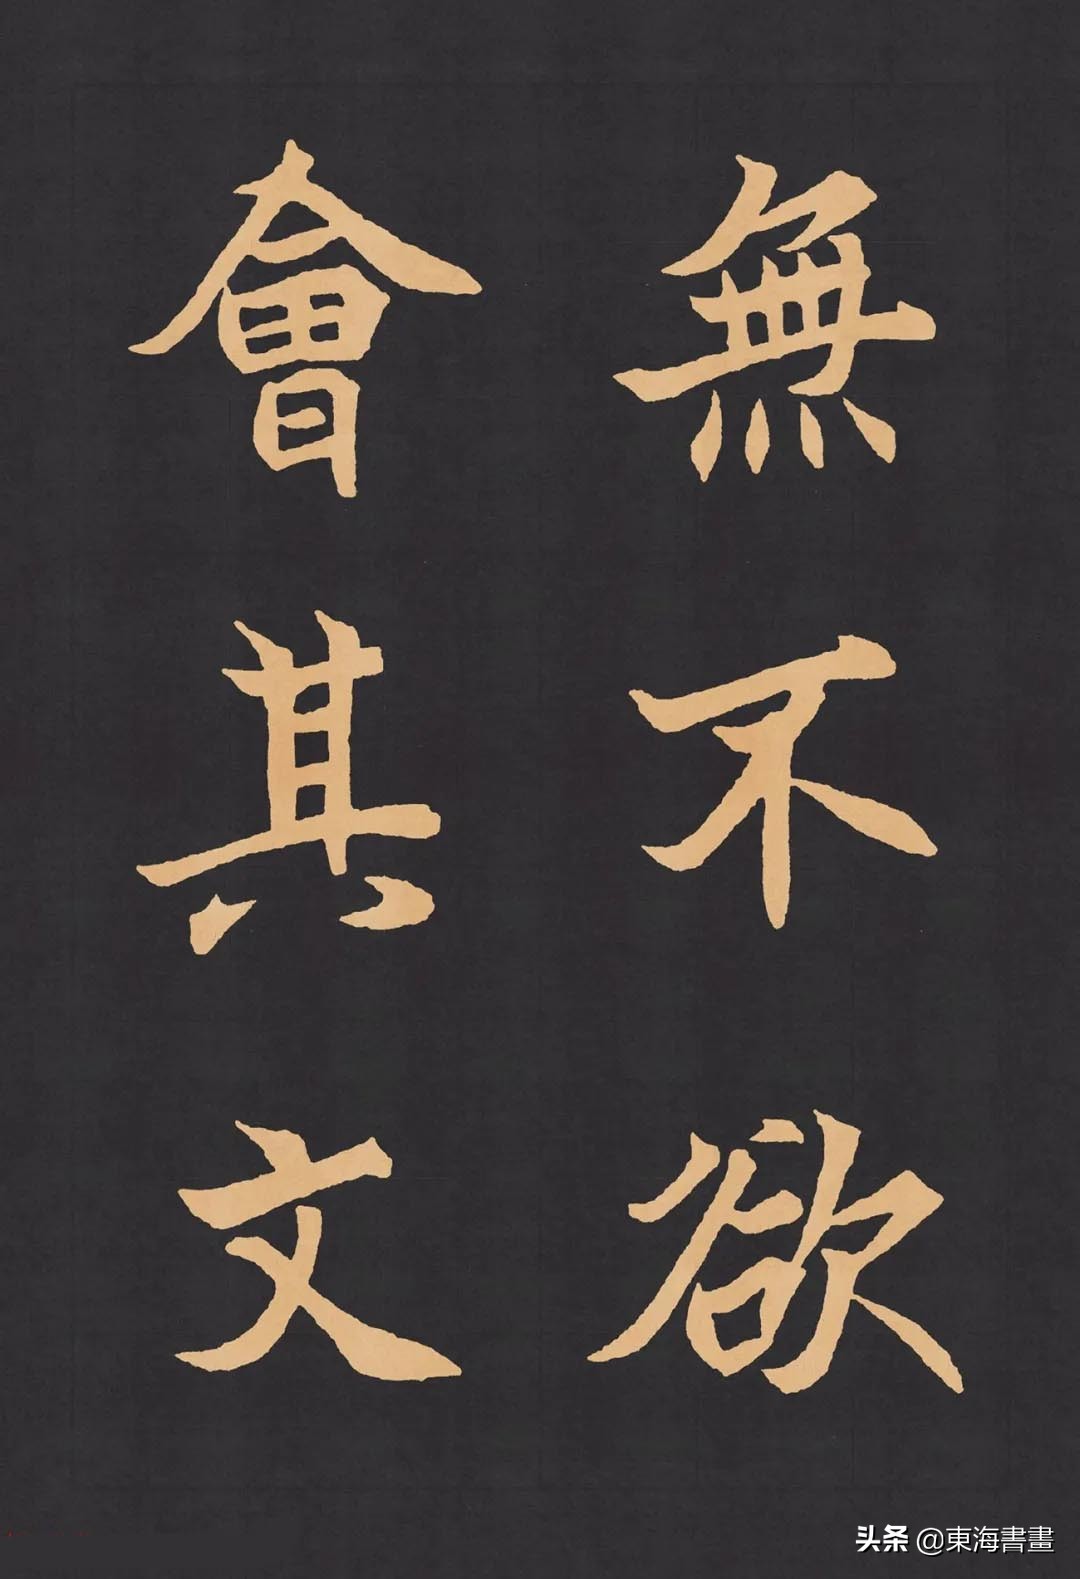 無不欲
會其文
头条 @東海書畫